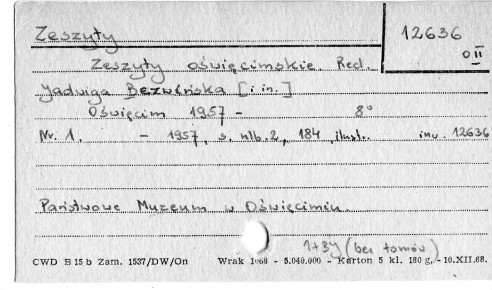 Zeszyty
12636
O II
Zeszyty oświęcimskie Red.
Jadwiga Bezwińska [i in.]
Oświęcim 1957 - 8°
Nr. 1. - 1957, s. nlb. 2, 184, ilustr. inw. 12636
Państwowe Muzeum w Oświęcimiu.
1+34 (bez tomów)
CWD B 15 b Zam. 1537/DW/On Wrak 1968 - 5.040.000 - Karton 5 kl. 180 g, -10.XII.68.